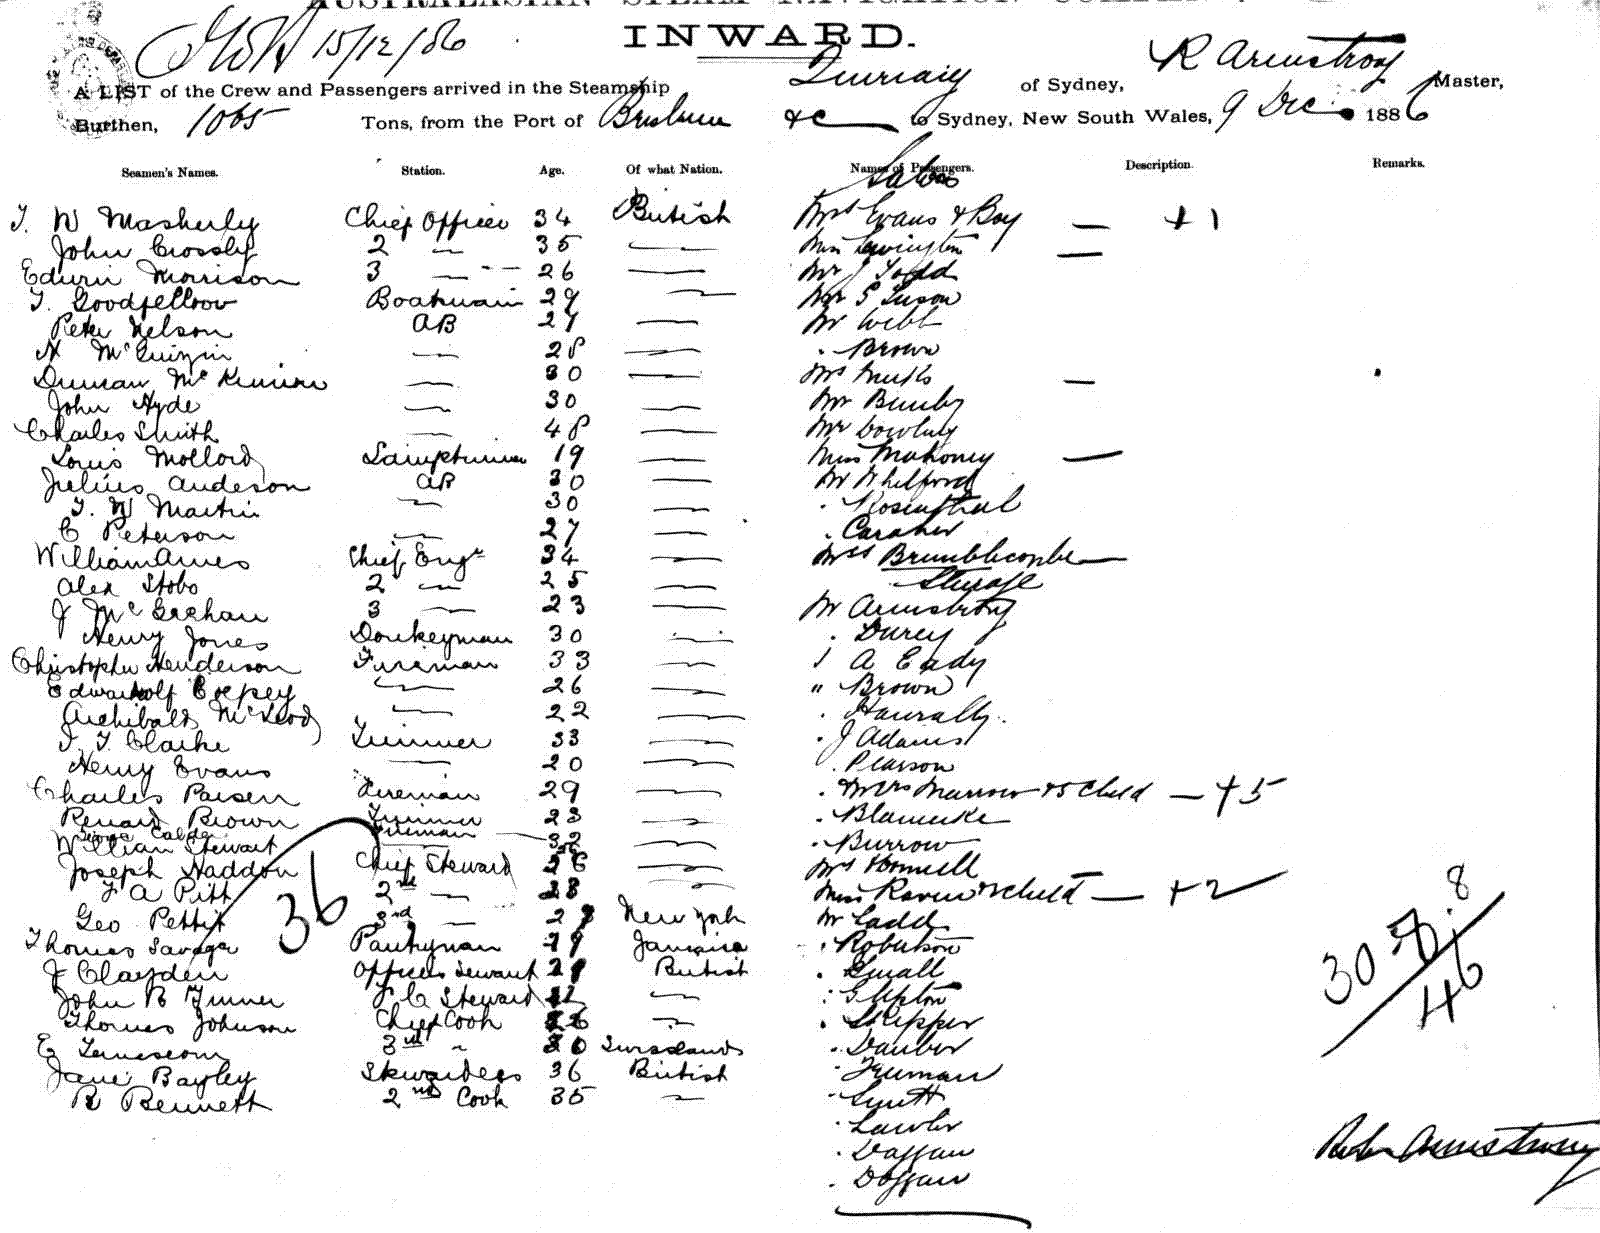 AUSTRALASIAN STEAM NAVIGATION COMPANY.
INWARD.
15/12/86
A LIST of the Crew and Passengers arrived in the Steamship of Sydney, R Armstrong Master,
Burthen, 1065 Tons, from the Port of Brisbane &c to Sydney, New South Wales, 9 Dec 1886
Seamen's Names. Station. Age. Of what Nation. Names of Passengers. Description. Remarks.
T. W Masherly Chief Officer 34 British Mrs Evans & Boy — + 1
John Crossby 2 — 35 — Miss Levington —
Edwin Morrison 3 — 26 — Mr J Todd
T. Goodfellow Boatswain 29 — Mr S Tuson
Peter Nelson AB 27 — Mr Webb
28 — . Brown
Duncan McKinnon — 30 — Mrs —
John Hyde — 30 — Mr Bumby
Charles Smith — 48 — Mr Dowling
Louis Mollord Lamptrimmer 19 — Miss Mahoney —
Julius Anderson AB 30 — Mr Whelford
T. W Martin — 30 — . Rosenthal
C Peterson — 27 — . Caraher
William Ames Chief Engr 34 — Mrs Brumblecombe —
Alex Stobo 2 — 25 — Steerage
J McGeehan 3 — 23 — Mr Armstrong
Henry Jones Donkeyman 30 . Durcy
Christopher Henderson Fireman 33 — A Eady
— 26 — " Brown
Archibald McLeod — 22 — . Hanrally
T. T. Clarke Trimmer 33 — . J Adams
Henry Evans — 20 — . Pearson
Charles Paisen Fireman 29 — . & Mrs Marrow & 5 child — + 5
Brown Trimmer 23 — .
George Calder Fireman — 32
William Stewart — . Burrow
Joseph Haddon Chief Steward 26 — Mrs Bonnell
F A Pitt 2nd — 28 — Miss Raven & 2 child — + 2
Geo Pettit 3rd — 29 New York Mr Ladd
Thomas Savage Pantryman 29 Jamaica . Robertson
J Clayden Officers Servant British . Small
John R Turner F C Steward — . G Upton
Thomas Johnson Chief Cook — . Skipper
E 3rd " 30 Switzerland . Dauber
Jane Bayley Stewardess 36 British . Truman
B Bennett 2nd Cook 35 — . Smith
. Lawler
. Daffan
. Doffan
36
30
8
46
Armstrong